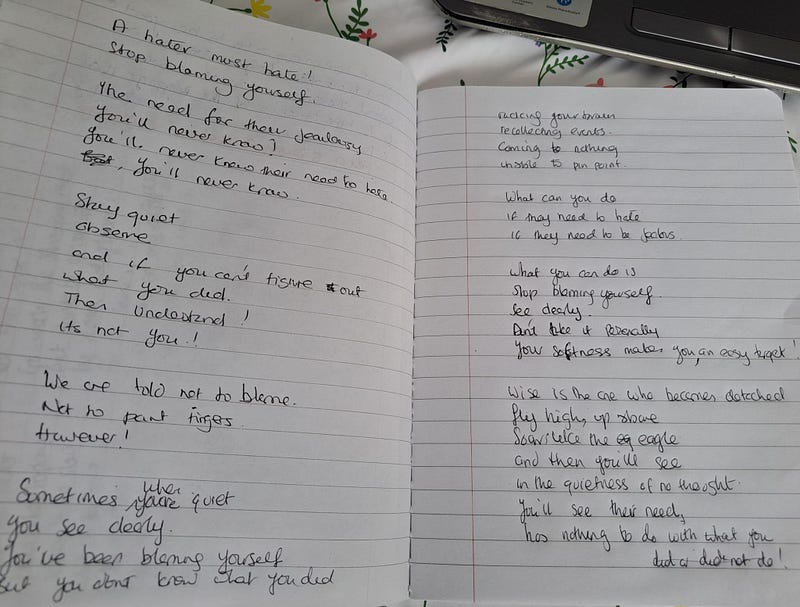 A hater must hate!
Stop blaming yourself.
The need for their jealousy
You'll never know!
You'll never know their need to hate
, You'll never know.
Stay quiet
observe
and if you can't figure out
what you did.
Then understand!
its not you!
We are told not to blame.
Not to point fingers
However!
Sometimes when you're quiet
you see clearly.
You've been blaming yourself
but you dont know what you did
racking your brain
recollecting events.
Coming to nothing
unable to pin point.
What can you do
if they need to hate
if they need to be jealous.
What you can do is
Stop blaming yourself.
See clearly.
Don't take it personally
Your softness makes you, an easy target!
Wise is the one who becomes detached
fly high, up above
Soar like the eagle
and then you'll see
in the quietness of no thought.
You'll see their need,
has nothing to do with what you
did or did not do!